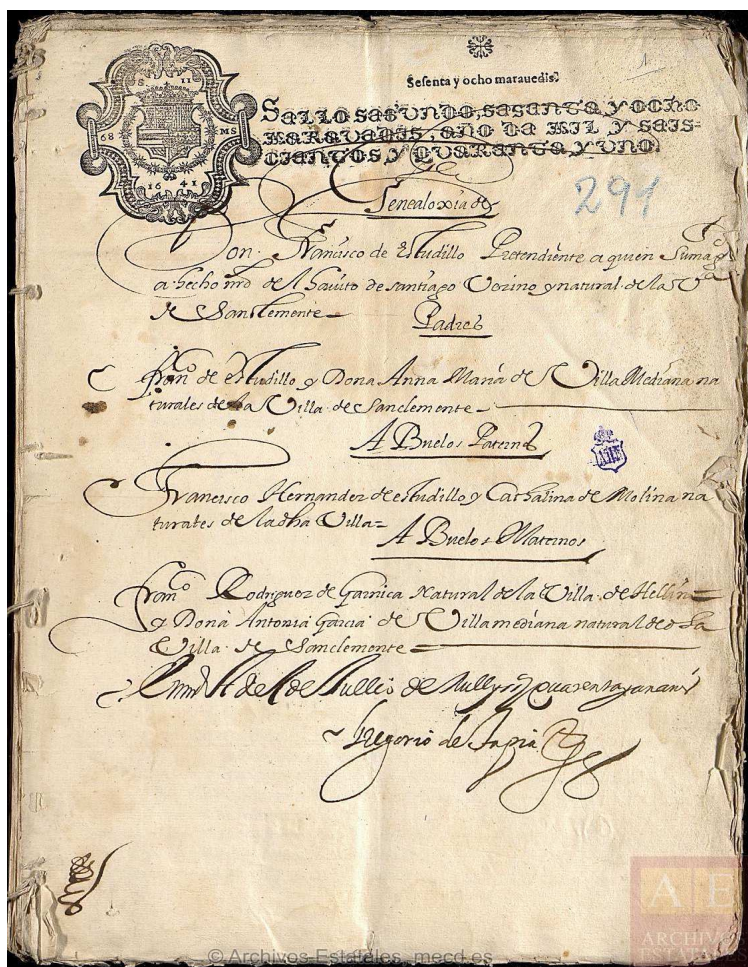 1
Sesenta y ocho marauedis.
S II
68 MS
1641
SELLO SEGVNDO, SESENTA Y OCHO
MARAVEDIS, AÑO DE MIL Y SEIS-
CIENTOS, Y QVARENTA Y VNO.
291
Genealoxia de
Don Francisco de estudillo Pretendiente a quien Su magd
a hecho mrd del hauito de santiago Vezino y natural de la Va
de Sanclemente
Padres
franco de estudillo y Dona Anna Maria de Villa Mediana na
turales de la Villa de Sanclemente
ABuelos Paternos
Francisco Hernandez de estudillo y Cathalina de Molina na
turales de la dha Villa=
ABuelos Maternos
Franco Rodriguez de Garnica Natural de la Villa de Hellin=
y Dona Antonia Garcia de Villamediana natural de dha
Villa de Sanclemente=
de Jullio de mill y seis quarenta y un
Gregorio de Tapia
AHN
AE
ARCHIVOS
ESTATALES
© Archivos Estatales, mecd.es